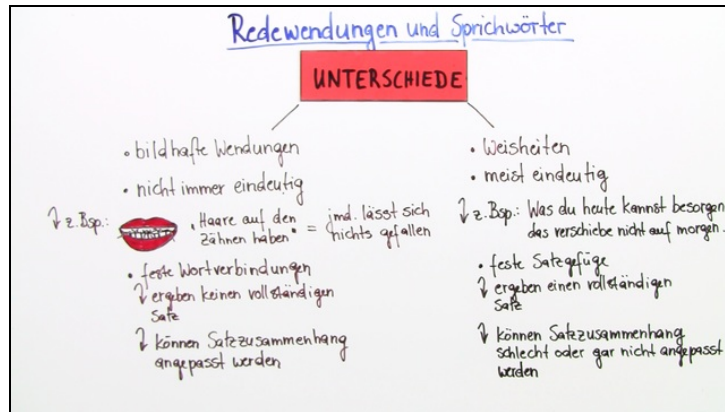 Redewendungen und Sprichwörter
UNTERSCHIEDE
• bildhafte Wendungen
• nicht immer eindeutig
↳ z.Bsp.: „Haare auf den
Zähnen haben" = jmd. lässt sich
nichts gefallen
• feste Wortverbindungen
↳ ergeben keinen vollständigen
Satz
↳ können Satzzusammenhang
angepasst werden
• Weisheiten
• meist eindeutig
↳ z.Bsp.: Was du heute kannst besorgen
das verschiebe nicht auf morgen.
• feste Satzgefüge
↳ ergeben einen vollständigen
Satz
↳ können Satzzusammenhang
schlecht oder gar nicht angepasst
werden